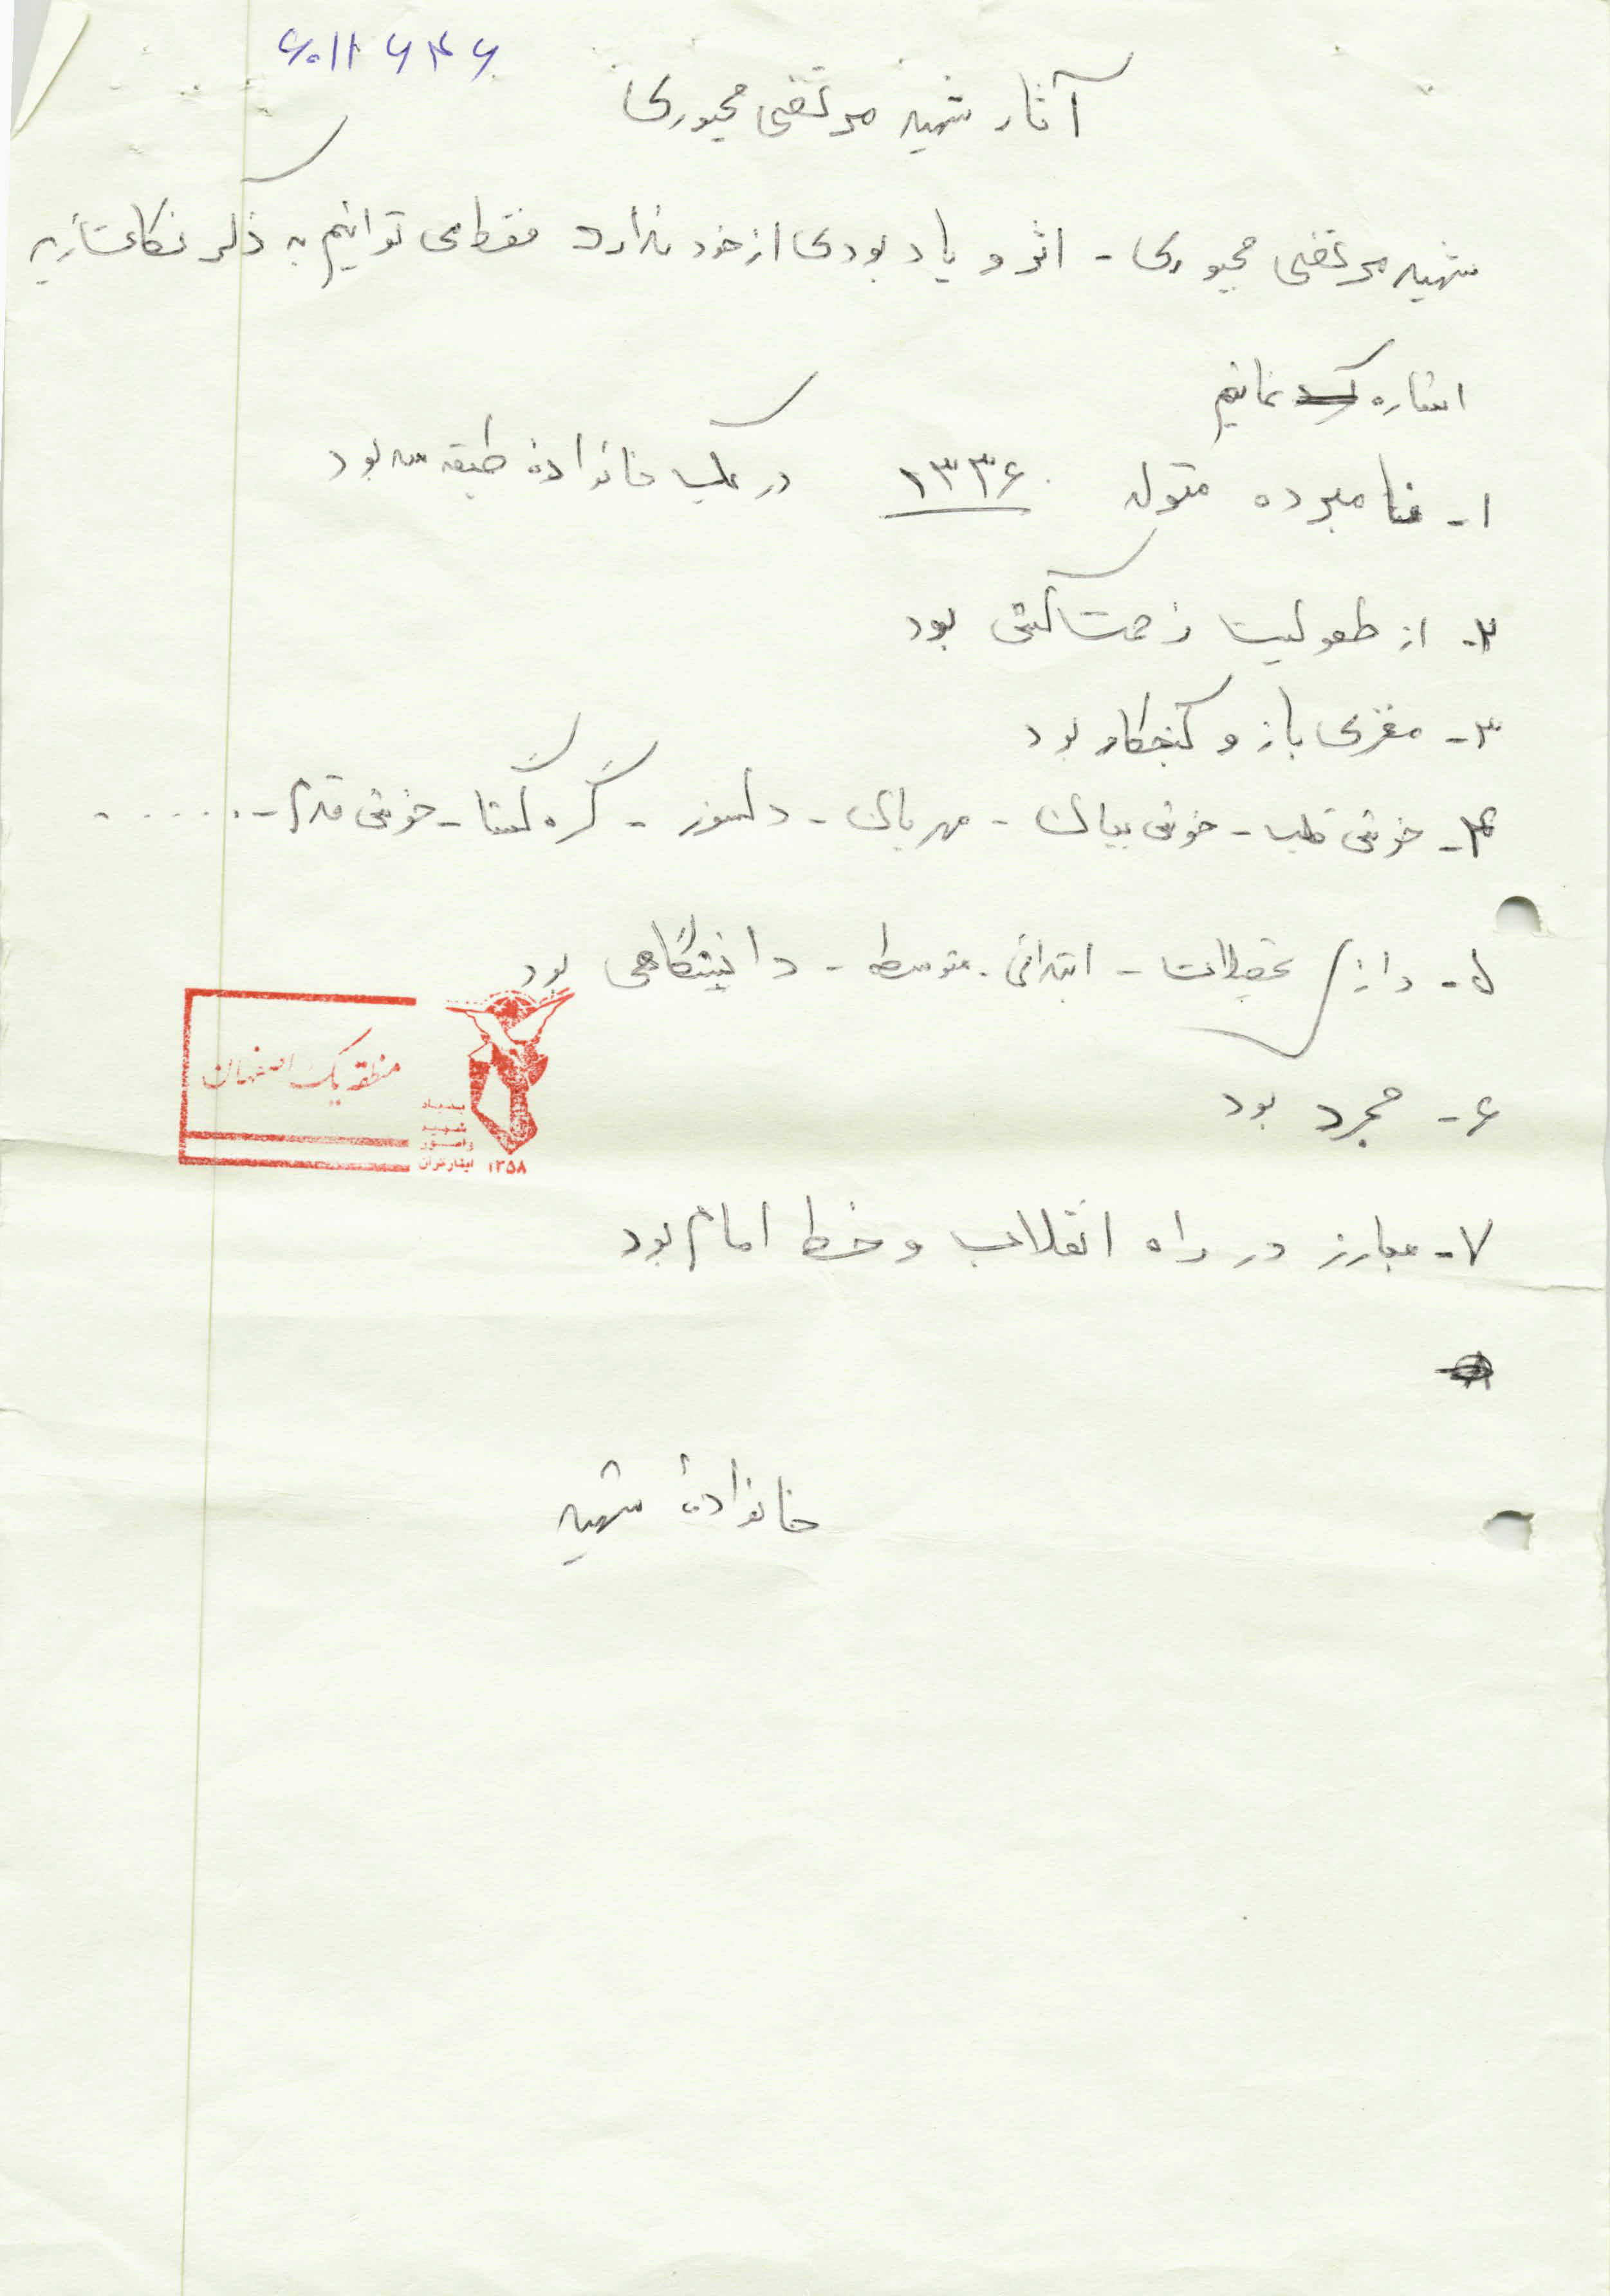 ۶۰۱۱۶۴۶
آثار شهید مرتضی مجبوری
شهید مرتضی مجبوری - اثر و یادبودی از خود ندارد فقط می توانیم به ذکر نکات زیر
اشاره نمائیم
۱- نامبرده متولد ۱۳۳۶ در یک خانوادهٔ طبقه سه بود
۲- از طفولیت زحمت کش بود
۳- مغزی باز و کنجکاو بود
۴- خوش قلب - خوش بیان - مهربان - دلسوز - گره گشا - خوش قدم - .....
۵- دارای تحصیلات - ابتدائی - متوسطه - دانشگاهی بود
منطقه یک اصفهان
بنیاد
شهید
و امور
ایثارگران ۱۳۵۸
۶- مجرد بود
۷- مبارز در راه انقلاب و خط امام بود
خانوادهٔ شهید